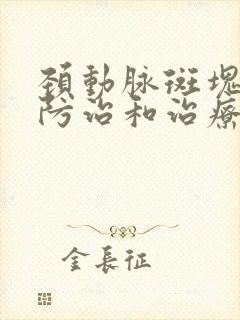 頚動脉斑塊
防治和治療
金長征